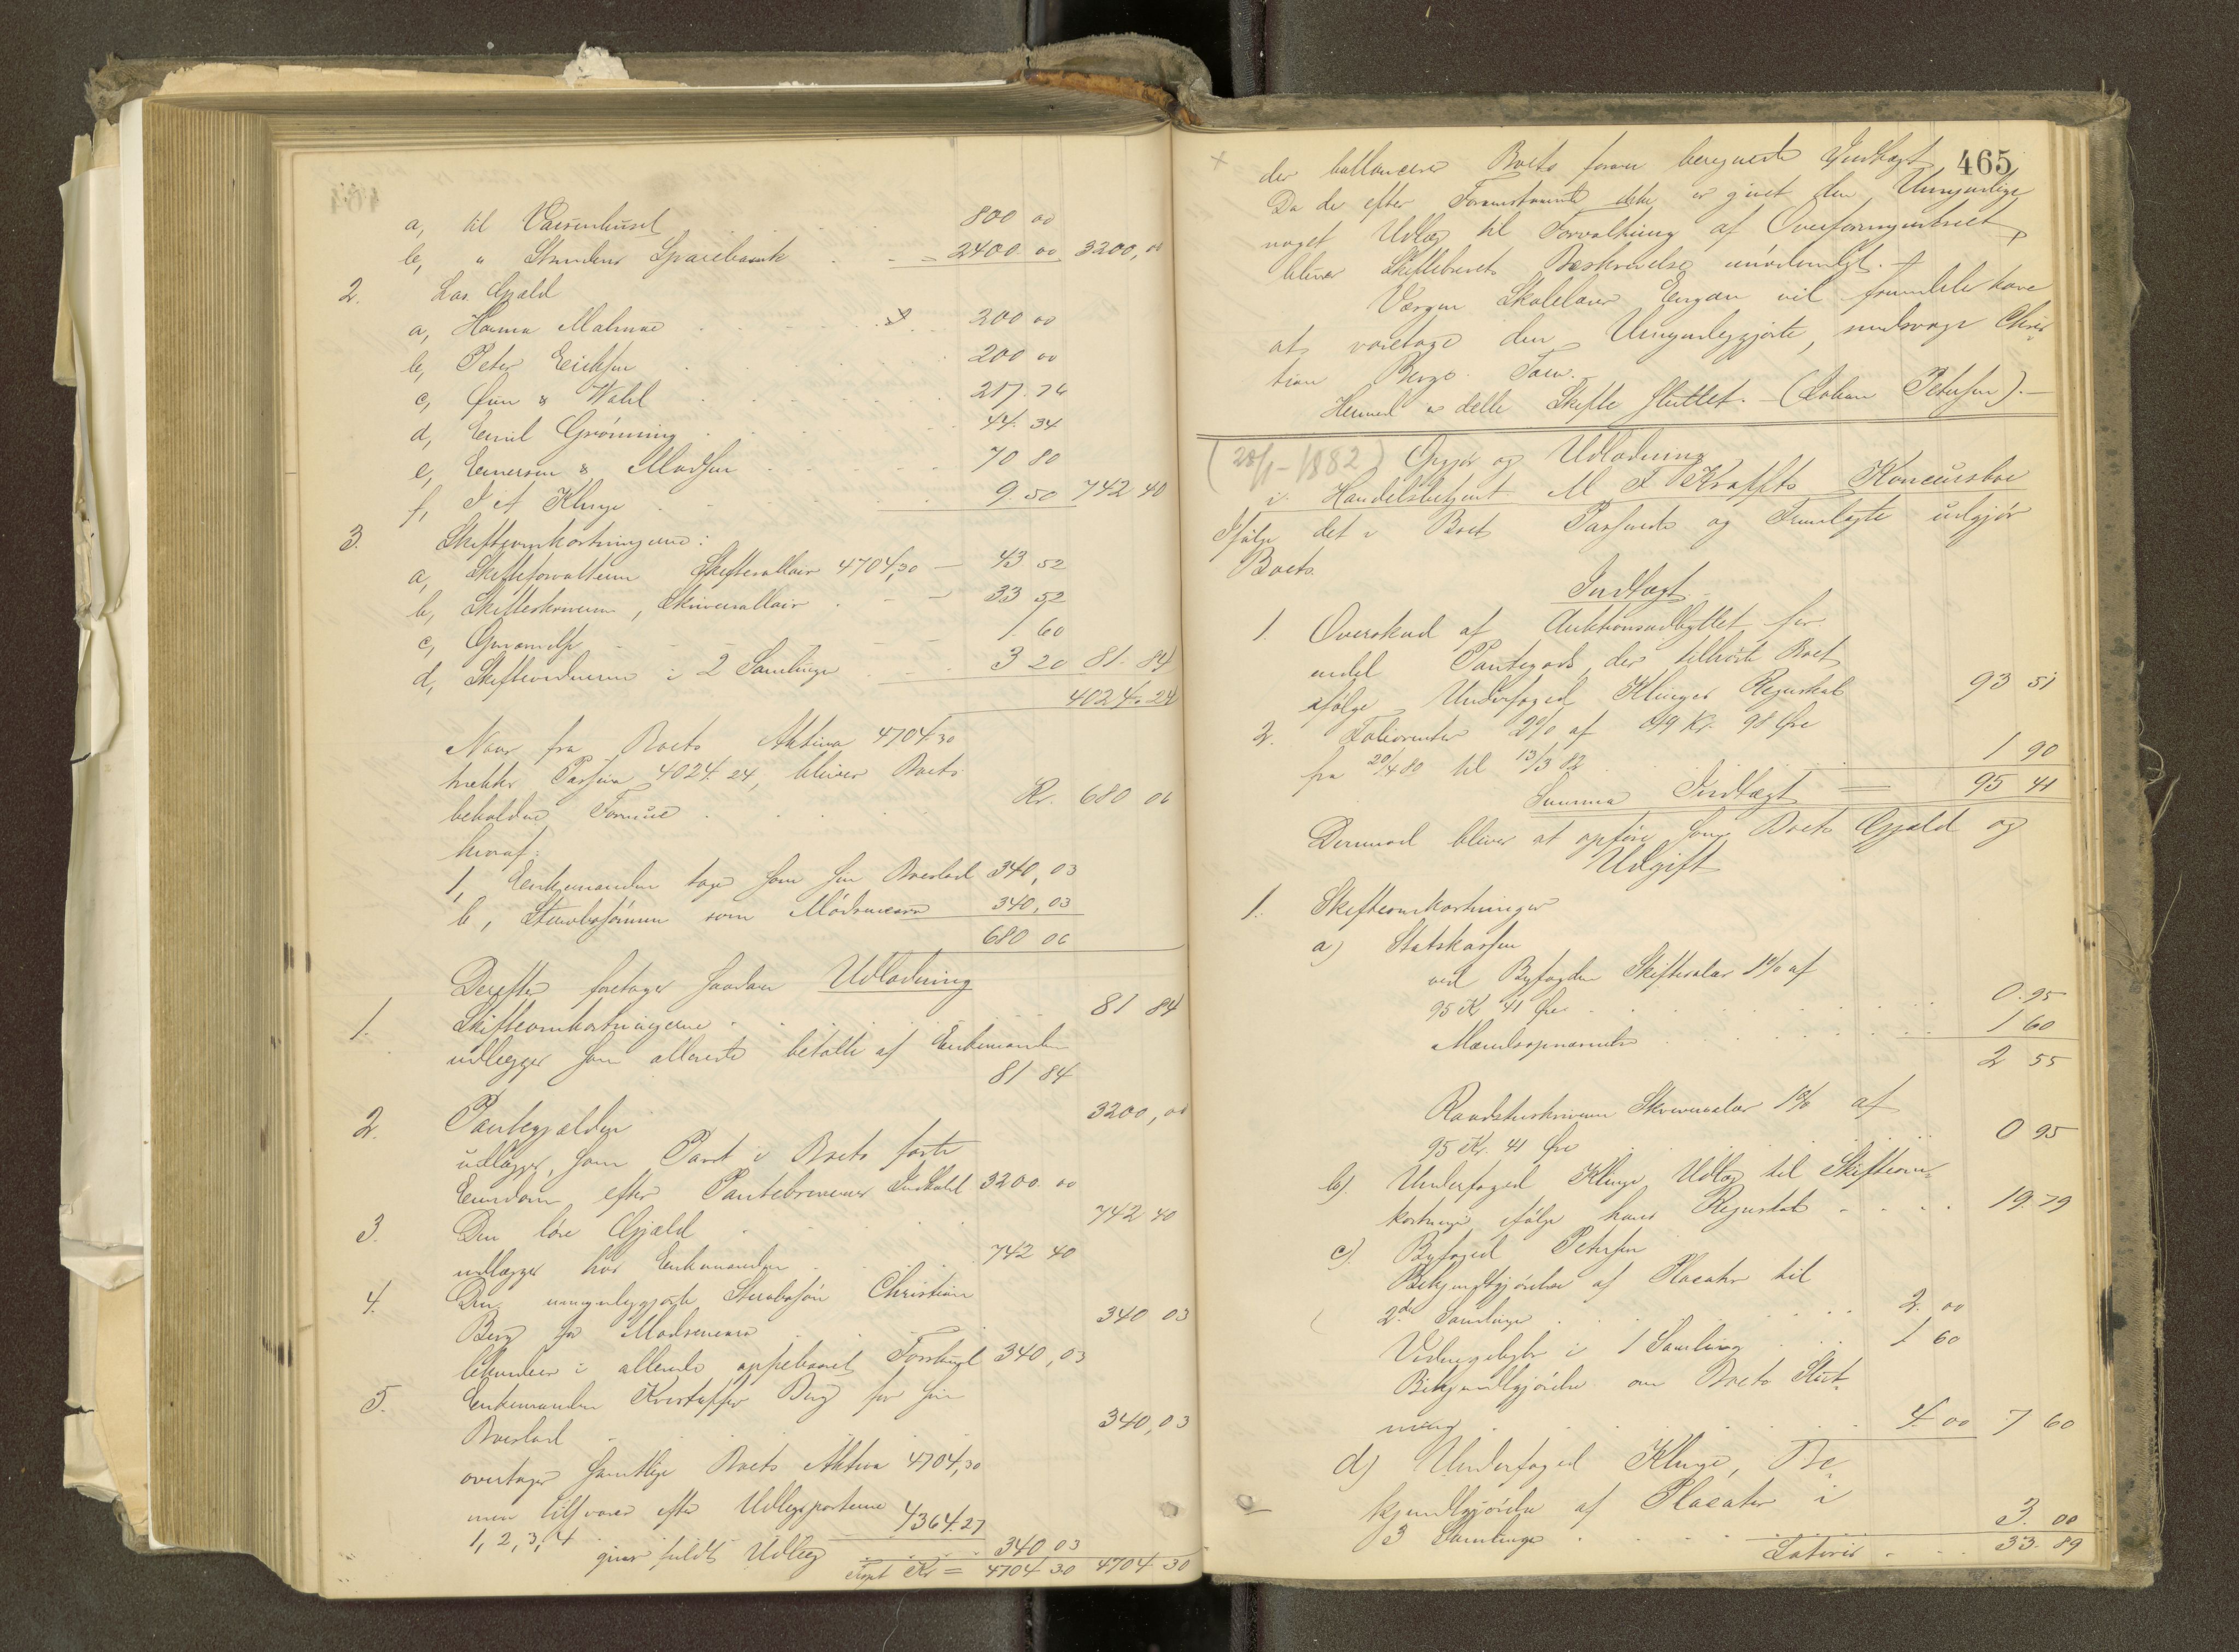 a, til Vaisenhuset . . . 800 00
b, " Strindens Sparebank . . - 2400 00 3200,00
2. Løs Gjæld
a, Hanna Malmøe . . . 200 00
b, Peter Erichsen . . . 200 00
c, Øien & Wahl . . . 217.76
d, Emil Grønning . . . 44.34
e, Evensen & Madsen . . . 70 80
f, I A Klinge . . . 9.50 742 40
3. Skifteomkostningerne:
a, Skifteforvalteren Skiftesallair 4704,30 — 43 52
b, Skifteskriveren, Skriversallair . - - 33 52
c, Opnævnelse - - - 1. 60
d, Skiftevidnerne i 2 Samlinger . . 3 20 81. 84
4024.24
Naar fra Boets Aktiva 4704.30
trækkes Passiva 4024.24, bliver Boets
beholdne Formue . . . Kr. 680 06
hvoraf:
1, Enkemanden tager som sin Boeslod 340,03
b, Stervbosønnen som Mødrenearv 340,03
680 06
Derefter foretages saadan Udlodning
1. Skifteomkostningerne . . . 81 84
udlægges som allerede betalte af Enkemanden
81 84
2. Pantegjælden 3200,00
udlægges, som Pant i Boets faste
Eiendom efter Pantebrevenes Indhold 3200.00
3. Den løse Gjæld . . . 742 40
udlægges hos Enkemanden . . . 742 40
4. Den umyndiggjorte Stervbosøn Christian
Berg for Mødrenearv . . . 340 03
i allerede oppebaaret Forskud 340,03
5. Enkemanden Kristoffer Berg for sin
Boeslod . . . 340,03
overtager samtlige Boets Aktiva 4704,30
men tilsvarer efter Udlægsposterne
1, 2, 3, 4 . . 4364.27
giver fuldt Udlæg . . . 340 03
Tilsat Kr = 4704 30 4704 30
465
der ballancerer Boets foran beregnede Indtægt
Da der efter Foranstaaende ikke er givet den Umyndige
noget Udlæg til Forvaltning af Overformynderiet,
bliver Skiftebrevets Beskrivelse unødvendigt.
Værgen Skolelærer Engan vil fremdeles have
at varetage den Umyndiggjorte, sindssvage Chris-
tian Bergs Tarv.-
Hermed er dette Skifte sluttet. - (Johan Petersen).-
(28/1 - 1882) Opgjør og Udlodning
i Handelsbetjent M F Kraffts Koncursboe
Ifølge det i Boet Passerede og Fremlagte udgjør
Boets
Indtægt
1. Overskud af Auktionsudbyttet for
endel Pantegods, der tilhørte Boet
ifølge Underfoged Klinges Regnskab 93 51
2. Foliorenter 2% af 49 Kr. 98 Øre
fra 20/4 80 til 13/3 82 . . . 1 90
Summa Indtægt = 95 41
Derimod bliver at opføre som Boets Gjæld og
Udgift
1. Skifteomkostninger
a) Statskassen
ved Byfogden Skiftesalær 1% af
95 Kr 41 Øre . . . 0.95
Mændsopnævnelse . . . 1 60
2 55
Raadstueskriveren Skriversalær 1% af
95 Kr. 41 Øre . . . 0 95
b). Underfoged Klinge, Udlæg til Skifteom-
kostninger ifølge hans Regnskab . . . 19.79
c). Byfoged Petersen
Bekjendtgjørelse af Placater til
2de Samlinger . . . 2. 00
Vidnegebyhr i 1 Samling . . 1 60
Bekjendtgjørelse om Boets Slut-
ning . . . 4.00 7 60
d) Underfoged Klinge, Be-
kjendtgjørelse af Placater i
3 Samlinger . . . 3. 00
Lateris . . . 33.89